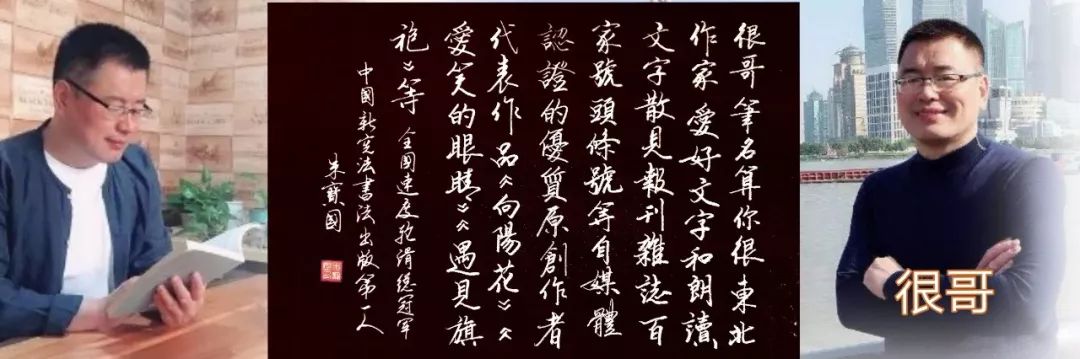 很哥筆名算你很東北
作家愛好文字和朗讀,
文字散見報刊雜誌百
家號頭條號等自媒體
認證的優質原創作者
代表作品《向陽花》《
愛笑的眼睛》《遇見旗
袍》等 全國速度滑總冠軍
中國新宪法書法出版第一人
朱寶國
很哥